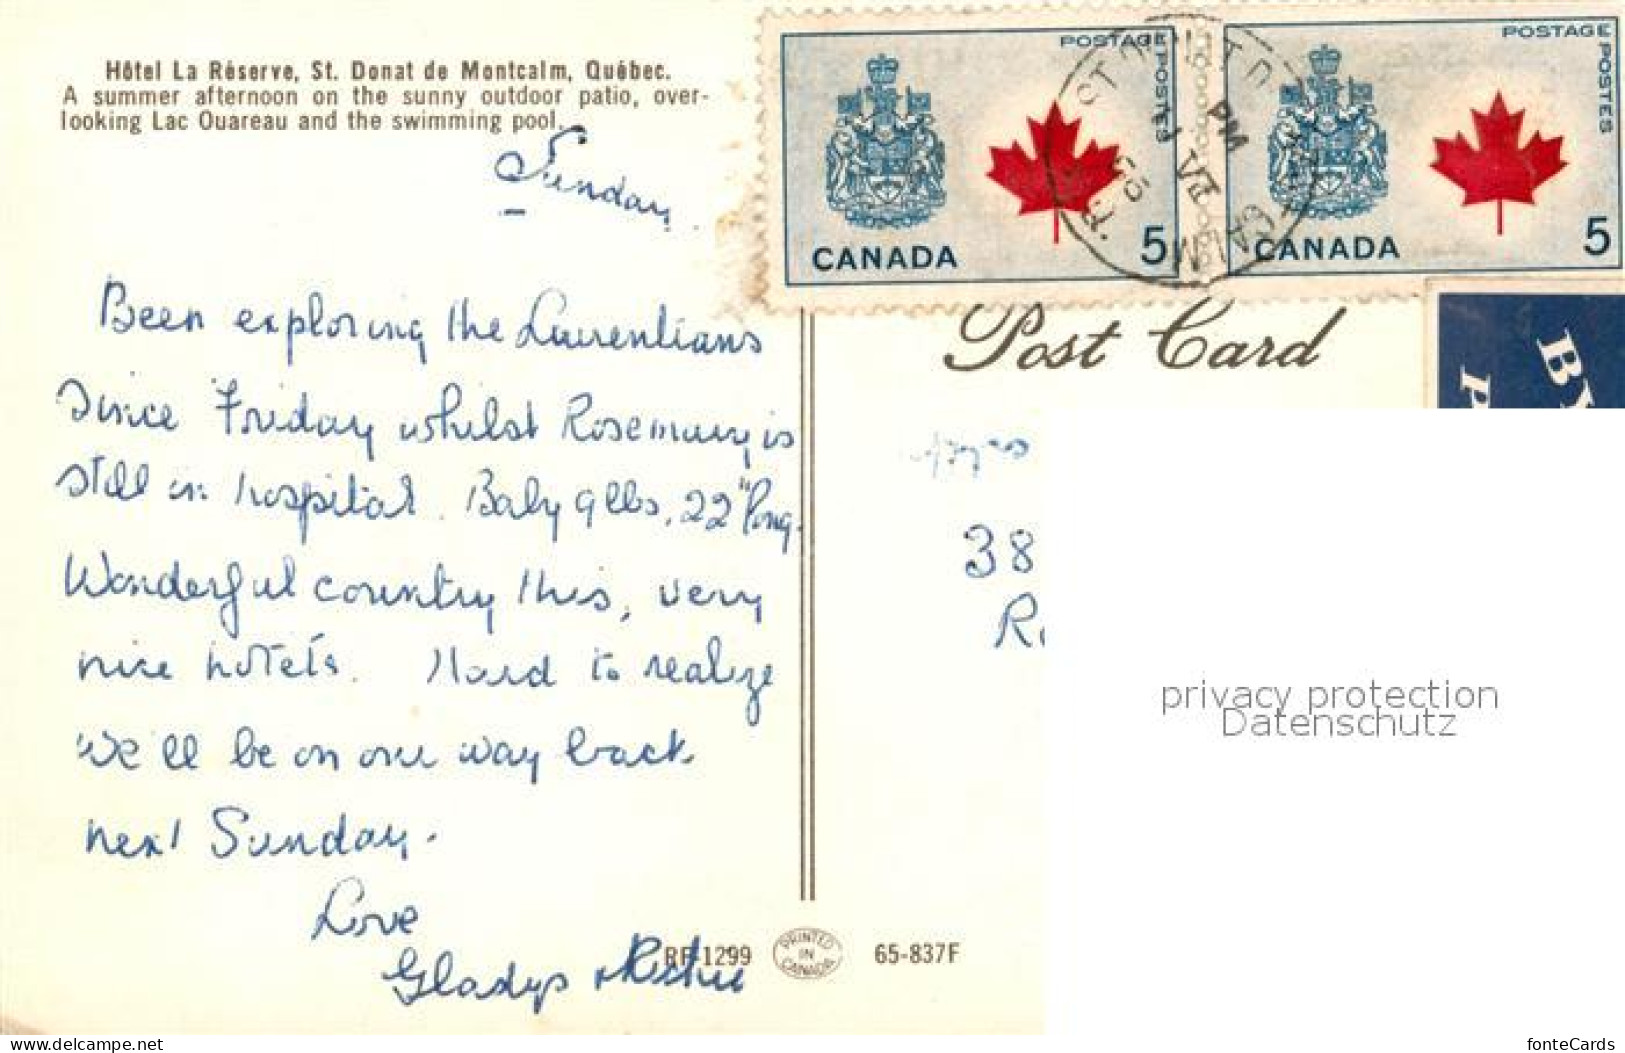 Hôtel La Réserve, St. Donat de Montcalm, Québec.
A summer afternoon on the sunny outdoor patio, over-
looking Lac Ouareau and the swimming pool.
Sunday
Been exploring the Laurentians
since Friday whilst Rosemary is
still in hospital. Baby 9lbs, 22" long.
Wonderful country this, very
nice hotels. Hard to realize
we'll be on our way back
next Sunday.
Love
Gladys &
RF-1299
PRINTED
IN
CANADA
65-837F
POSTAGE
POSTES
CANADA
5
POSTAGE
POSTES
CANADA
5
PM
Post Card
BY
P
38
R
privacy protection
Datenschutz
www.delcampe.net
fonteCards